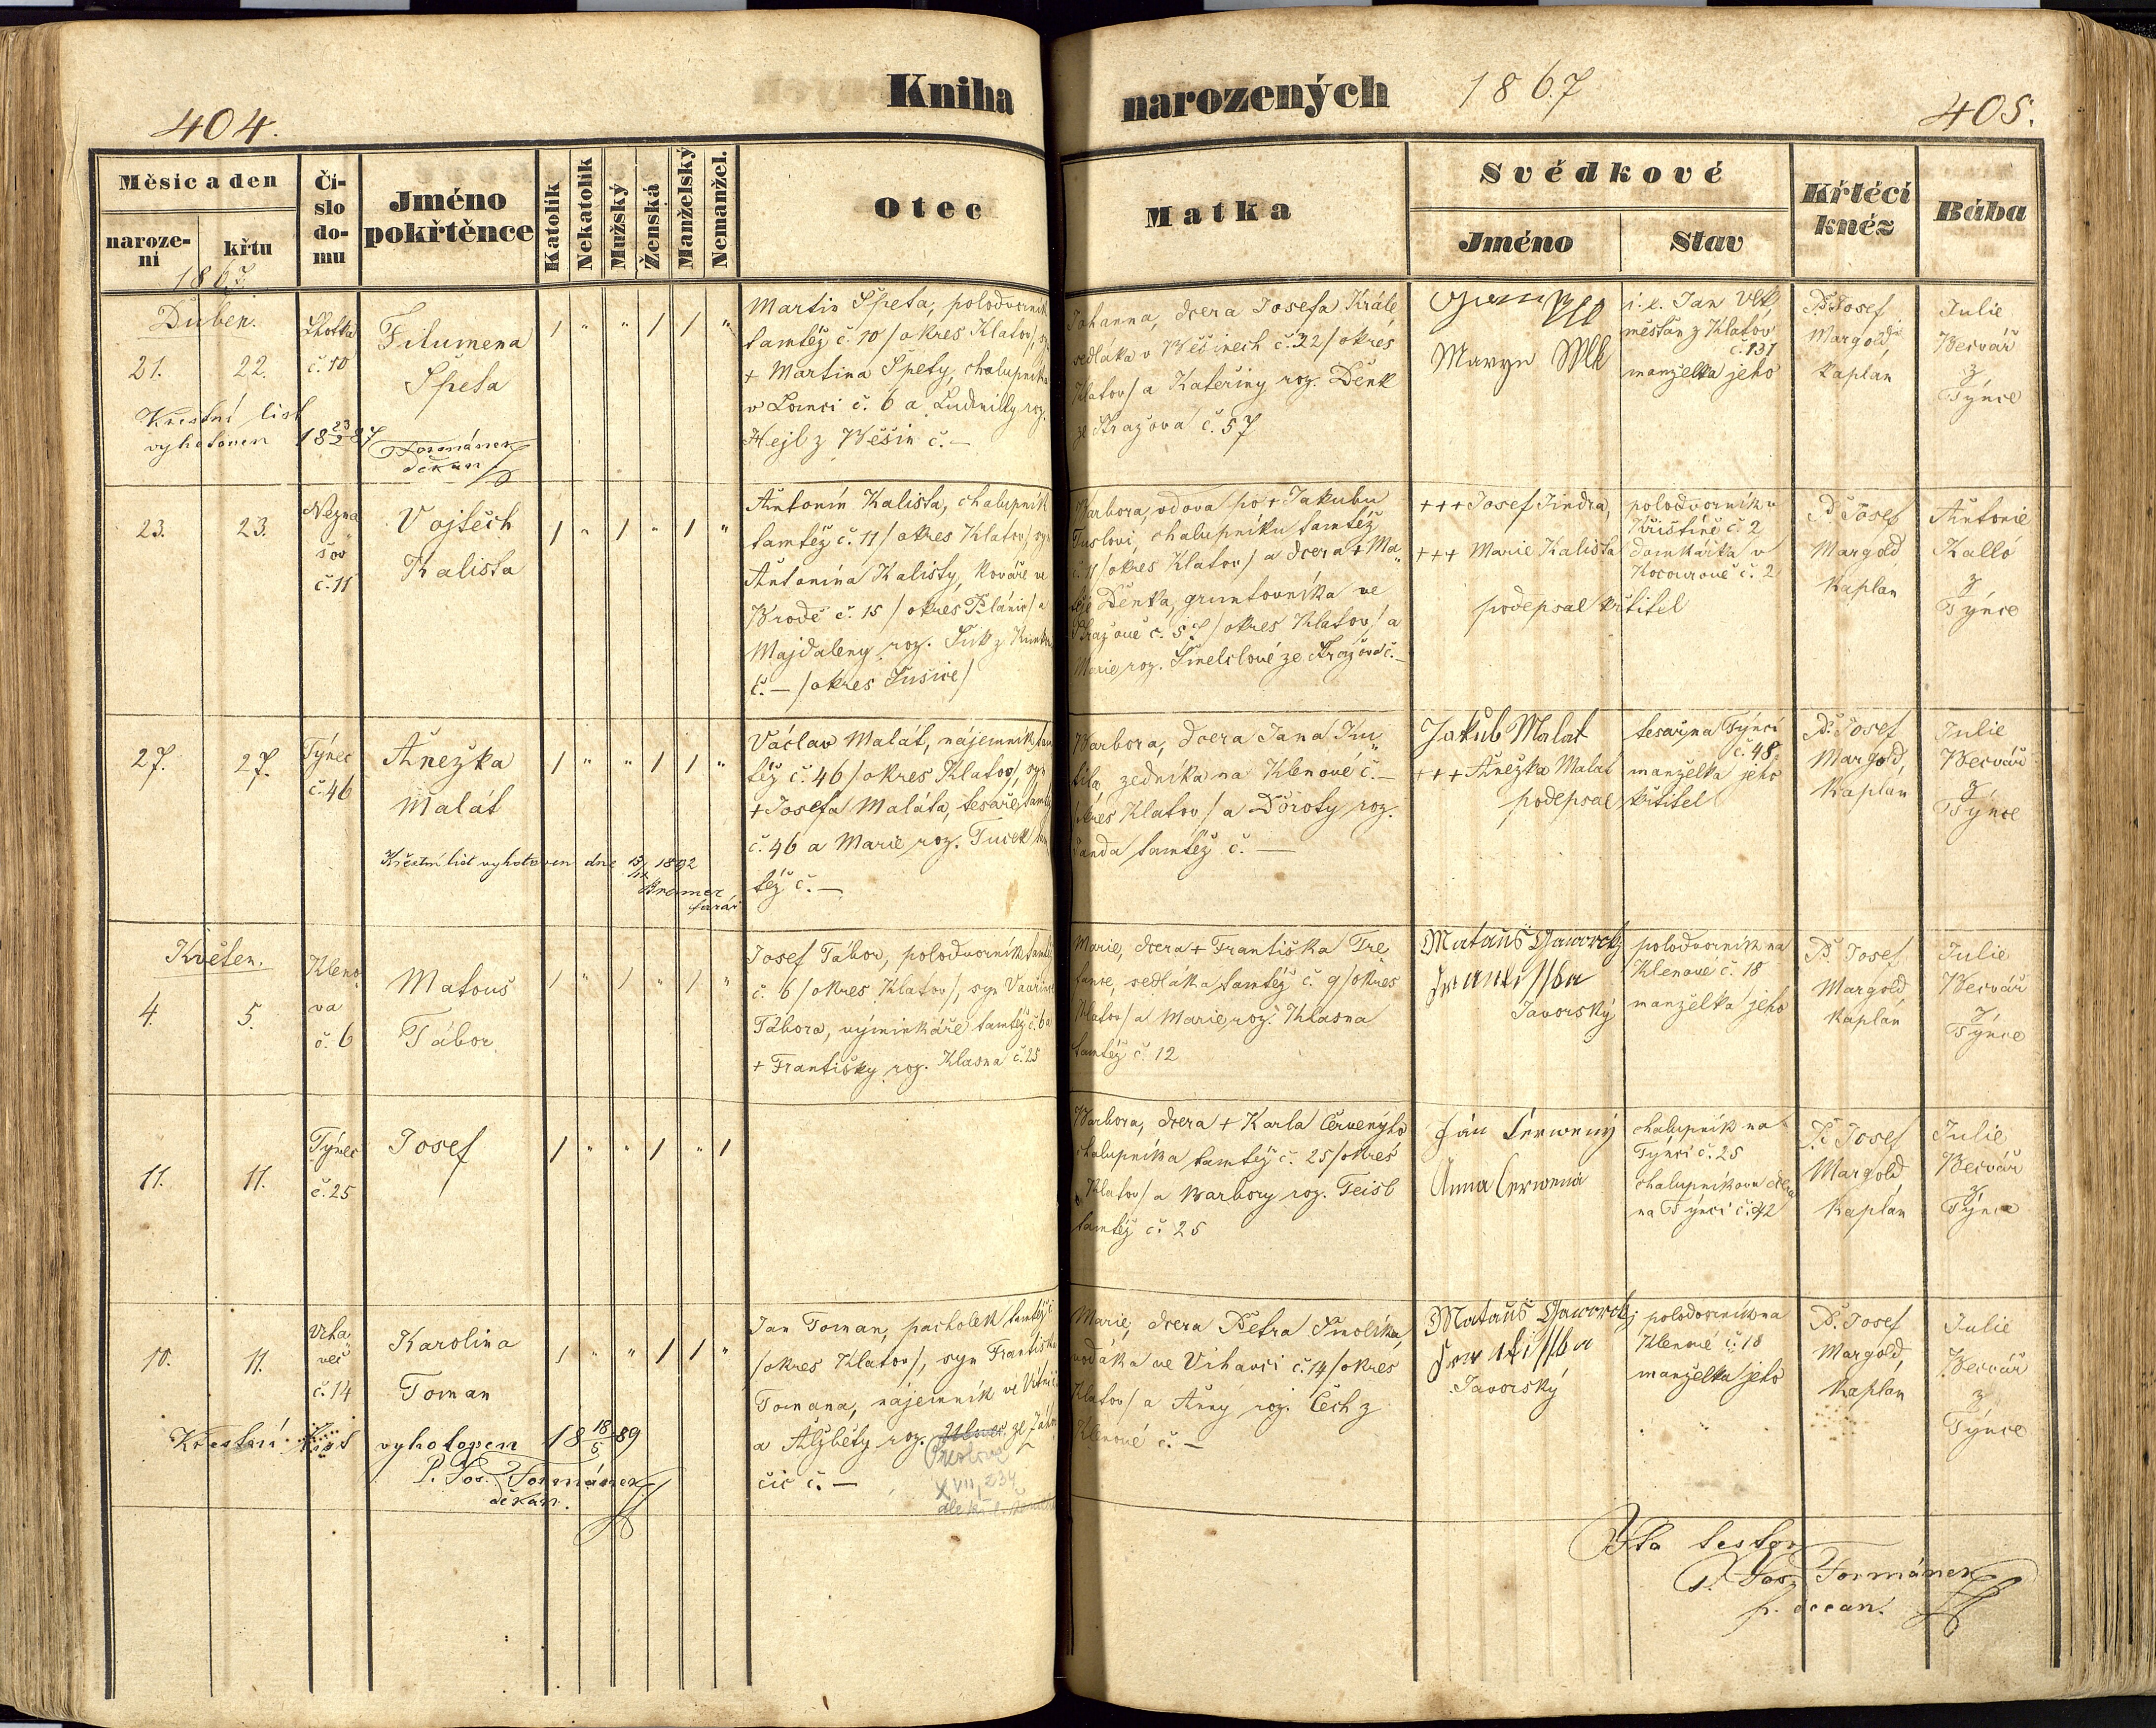 Kniha
narozených 1867
404.
405.
Měsíc a den
naroze-
ní
křtu
1867
Čí-
slo
do-
mu
Jméno
pokřtěnce
Katolík
Nekatolík
Mužský
Ženská
Manželský
Nemanžel.
Otec
Matka
Svědkové
Jméno
Stav
Křtěcí
kněz
Bába
Duben.
21.
22.
Lhotka
č. 10
Filumena
Špeta
/ " " / / "
Martin Špeta, polodvorník
tamtéž č. 10 / okres Klatov /, syn
+ Martina Špety, chalupníka
v Lomci č. 6 a Ludmilly roz.
Hejl z Wěšin č. —
Johanna, dcera Josefa Krále
sedláka v Wěšinech č. 22 / okres
Klatov / a Kateřiny roz. Denk
ze Stražova č. 57
i. e. Jan Vlk
měšťan z Klatov
č. 131
manželka jeho
P. Josef
Margold
Kaplán
Julie
Bečvář
z
Týnce
Křestní list
vyhotoven 18 23/2 87
Formánek
děkan
23.
23.
Nezna
šov
č. 11
Vojtěch
Kalista
/ " / " / "
Antonín Kalista, chalupník
tamtéž č. 11 / okres Klatov / syn
Antonína Kalisty, kováře ve
Brodě č. 15 / okres Plánic / a
Majdaleny roz.
č. — / okres Sušice /
Barbora, vdova po + Jakubu
chalupníku tamtéž
č. 11 / okres Klatov / a dcera + Ma
těje Denka, gruntovníka ve
Stražově č. 57 / okres Klatov / a
Marie roz. ze Stražova č. —
+++ Josef Jindra,
+++ Marie Kalista
podepsal křtitel
polodvorník v
Křištíně č. 2
domkářka v
Kocourově č. 2
P. Josef
Margold
Kaplán
Antonie
Kalló
z
Týnce
27.
27.
Týnec
č. 46
Anežka
Malát
/ " " / / "
Václav Malát, nájemník tam
též č. 46 / okres Klatov /, syn
+ Josefa Maláta, tesaře tamtéž
č. 46 a Marie roz. Tucek tam
též č. —
Barbora, dcera Jana
zedníka na Klenové č. —
/ okres Klatov / a Doroty roz.
tamtéž č. —
Jakub Malat
+++ Anežka Malat
podepsal křtitel
tesař na Týnci
č. 48,
manželka jeho
P. Josef
Margold,
Kaplán
Julie
Bečvář
z
Týnce
Křestní list vyhotoven dne 1892
farář
Květen.
4.
5.
Kleno
va
č. 6
Matouš
Tábor
/ " / " / "
Josef Tábor, polodvorník tamtéž
č. 6 / okres Klatov /, syn Vavřince
Tábora, výminkáře tamtéž č. 6 a
+ Františky roz. Klasna č. 25
Marie, dcera + Františka
sedláka tamtéž č. 9 / okres
Klatov / a Marie roz. Klasna
tamtéž č. 12
Mataus Jaworský
Frantisska
Javorský
polodvorník na
Klenové č. 18
manželka jeho
P. Josef
Margold
Kaplán
Julie
Bečvář
z
Týnce
11.
11.
Týnec
č. 25
Josef
/ " " / " /
Barbora, dcera + Karla Červenýho
chalupníka tamtéž č. 25 / okres
Klatov / a Barbory roz.
tamtéž č. 25
Ján Cerweny
Anna Cerwena
chalupník na
Týnci č. 25
chalupníkova dcera
na Týnci č. 42
P. Josef
Margold
Kaplán
Julie
Bečvář
z
Týnce
10.
11.
Vrha
več
č. 14
Karolina
Toman
/ " " / / "
Jan Toman, pacholek tamtéž č.
/ okres Klatov /, syn Františka
Tomana, nájemník ve
a Alžběty roz.
čic č. —
XVII, 234
Marie, dcera Petra Smolíka
ve Vrhavči č. 14 / okres
Klatov / a Anny roz. Čech z
Klenové č. —
Mataus Jaworský
Frantisska
Javorský
polodvorník na
Klenové č. 18
manželka jeho
P. Josef
Margold,
Kaplán
Julie
Bečvář
z
Týnce
Křestní list vyhotoven 18 18/5 89
P. Jos. Formánek
děkan.
Ita testor
P. Jos. Formánek
p. decan.